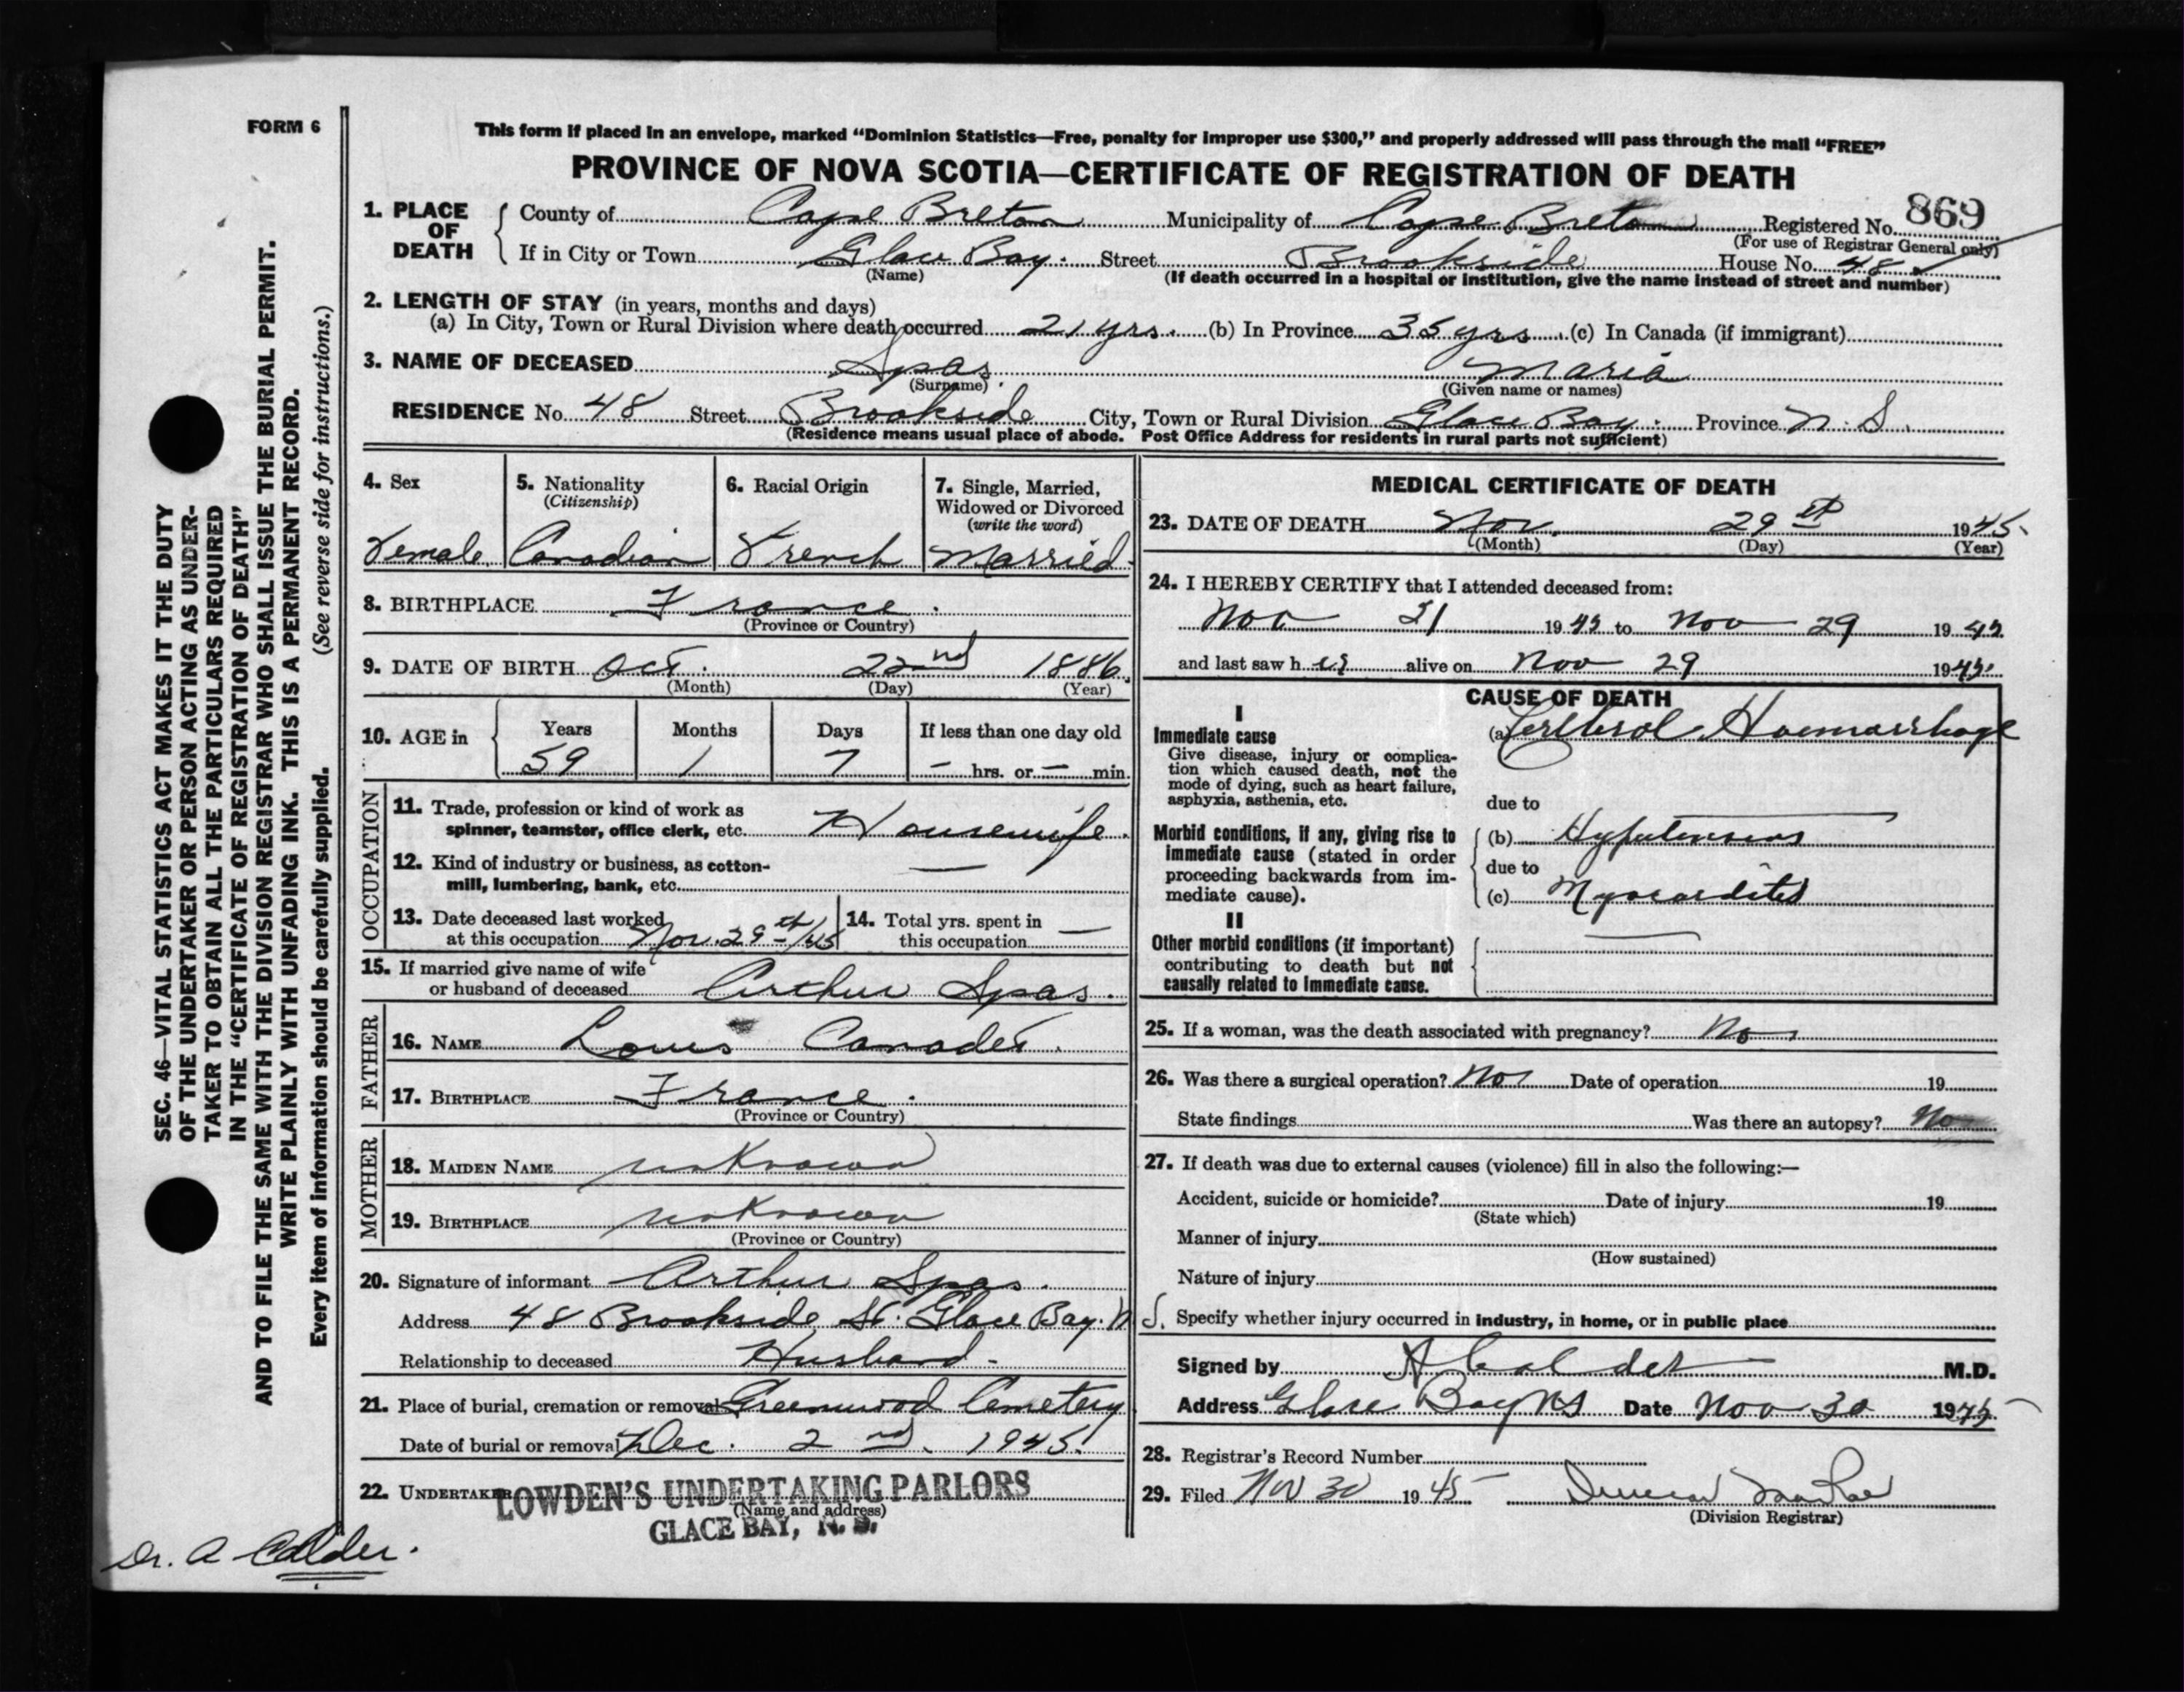 FORM 6
This form if placed in an envelope, marked “Dominion Statistics—Free, penalty for improper use $300,” and properly addressed will pass through the mail “FREE”
PROVINCE OF NOVA SCOTIA—CERTIFICATE OF REGISTRATION OF DEATH
1. PLACE OF DEATH County of Cape Breton Municipality of Cape Breton Registered No. 869
(For use of Registrar General only)
If in City or Town Glace Bay. Street Brookside House No. 48
(Name) (If death occurred in a hospital or institution, give the name instead of street and number)
2. LENGTH OF STAY (in years, months and days)
(a) In City, Town or Rural Division where death occurred 21 yrs. (b) In Province 35 yrs. (c) In Canada (if immigrant)
3. NAME OF DECEASED Spas Maria
(Surname) (Given name or names)
RESIDENCE No. 48 Street Brookside City, Town or Rural Division Glace Bay. Province N. S.
(Residence means usual place of abode. Post Office Address for residents in rural parts not sufficient)
4. Sex
Female
5. Nationality
(Citizenship)
Canadian
6. Racial Origin
French
7. Single, Married,
Widowed or Divorced
(write the word)
Married
8. BIRTHPLACE France.
(Province or Country)
9. DATE OF BIRTH Oct. 22nd 1886
(Month) (Day) (Year)
10. AGE in Years Months Days If less than one day old
59 1 7 — hrs. or — min.
OCCUPATION
11. Trade, profession or kind of work as
spinner, teamster, office clerk, etc. Housewife.
12. Kind of industry or business, as cotton-
mill, lumbering, bank, etc. —
13. Date deceased last worked
at this occupation Nov. 29th/45
14. Total yrs. spent in
this occupation —
15. If married give name of wife
or husband of deceased Arthur Spas.
FATHER
16. NAME Louis Canadet.
17. BIRTHPLACE France.
(Province or Country)
MOTHER
18. MAIDEN NAME unknown
19. BIRTHPLACE unknown
(Province or Country)
20. Signature of informant Arthur Spas.
Address 48 Brookside St. Glace Bay. N S.
Relationship to deceased Husband.
21. Place of burial, cremation or removal Greenwood Cemetery
Date of burial or removal Dec. 2nd. 1945.
22. UNDERTAKER LOWDEN'S UNDERTAKING PARLORS
(Name and address)
GLACE BAY, N. S.
MEDICAL CERTIFICATE OF DEATH
23. DATE OF DEATH Nov. 29th 1945.
(Month) (Day) (Year)
24. I HEREBY CERTIFY that I attended deceased from:
Nov 21 1945 to Nov 29 1945
and last saw her alive on Nov 29 1945
CAUSE OF DEATH
I
Immediate cause
Give disease, injury or complica-
tion which caused death, not the
mode of dying, such as heart failure,
asphyxia, asthenia, etc.
(a) Cerebral Haemorrhage
due to
Morbid conditions, if any, giving rise to
immediate cause (stated in order
proceeding backwards from im-
mediate cause).
(b) Hypertension
due to
(c) Myocarditis
II
Other morbid conditions (if important)
contributing to death but not
causally related to immediate cause.
25. If a woman, was the death associated with pregnancy? No
26. Was there a surgical operation? No Date of operation 19
State findings Was there an autopsy? No
27. If death was due to external causes (violence) fill in also the following:—
Accident, suicide or homicide? Date of injury 19
(State which)
Manner of injury
(How sustained)
Nature of injury
Specify whether injury occurred in industry, in home, or in public place
Signed by A Calder M.D.
Address Glace Bay NS Date Nov 30 1945
28. Registrar's Record Number
29. Filed Nov 30 1945
(Division Registrar)
Dr. A Calder.
SEC. 46—VITAL STATISTICS ACT MAKES IT THE DUTY
OF THE UNDERTAKER OR PERSON ACTING AS UNDER-
TAKER TO OBTAIN ALL THE PARTICULARS REQUIRED
IN THE “CERTIFICATE OF REGISTRATION OF DEATH”
AND TO FILE THE SAME WITH THE DIVISION REGISTRAR WHO SHALL ISSUE THE BURIAL PERMIT.
WRITE PLAINLY WITH UNFADING INK. THIS IS A PERMANENT RECORD.
Every item of information should be carefully supplied. (See reverse side for instructions.)